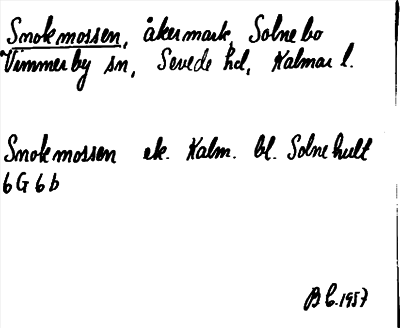 Smokmossen, åkermark, Solnebo
Vimmerby sn, Sevede hd, Kalmar l.
Smokmossen ek. Kalm. bl. Solnehult
6G6b
B L. 1957